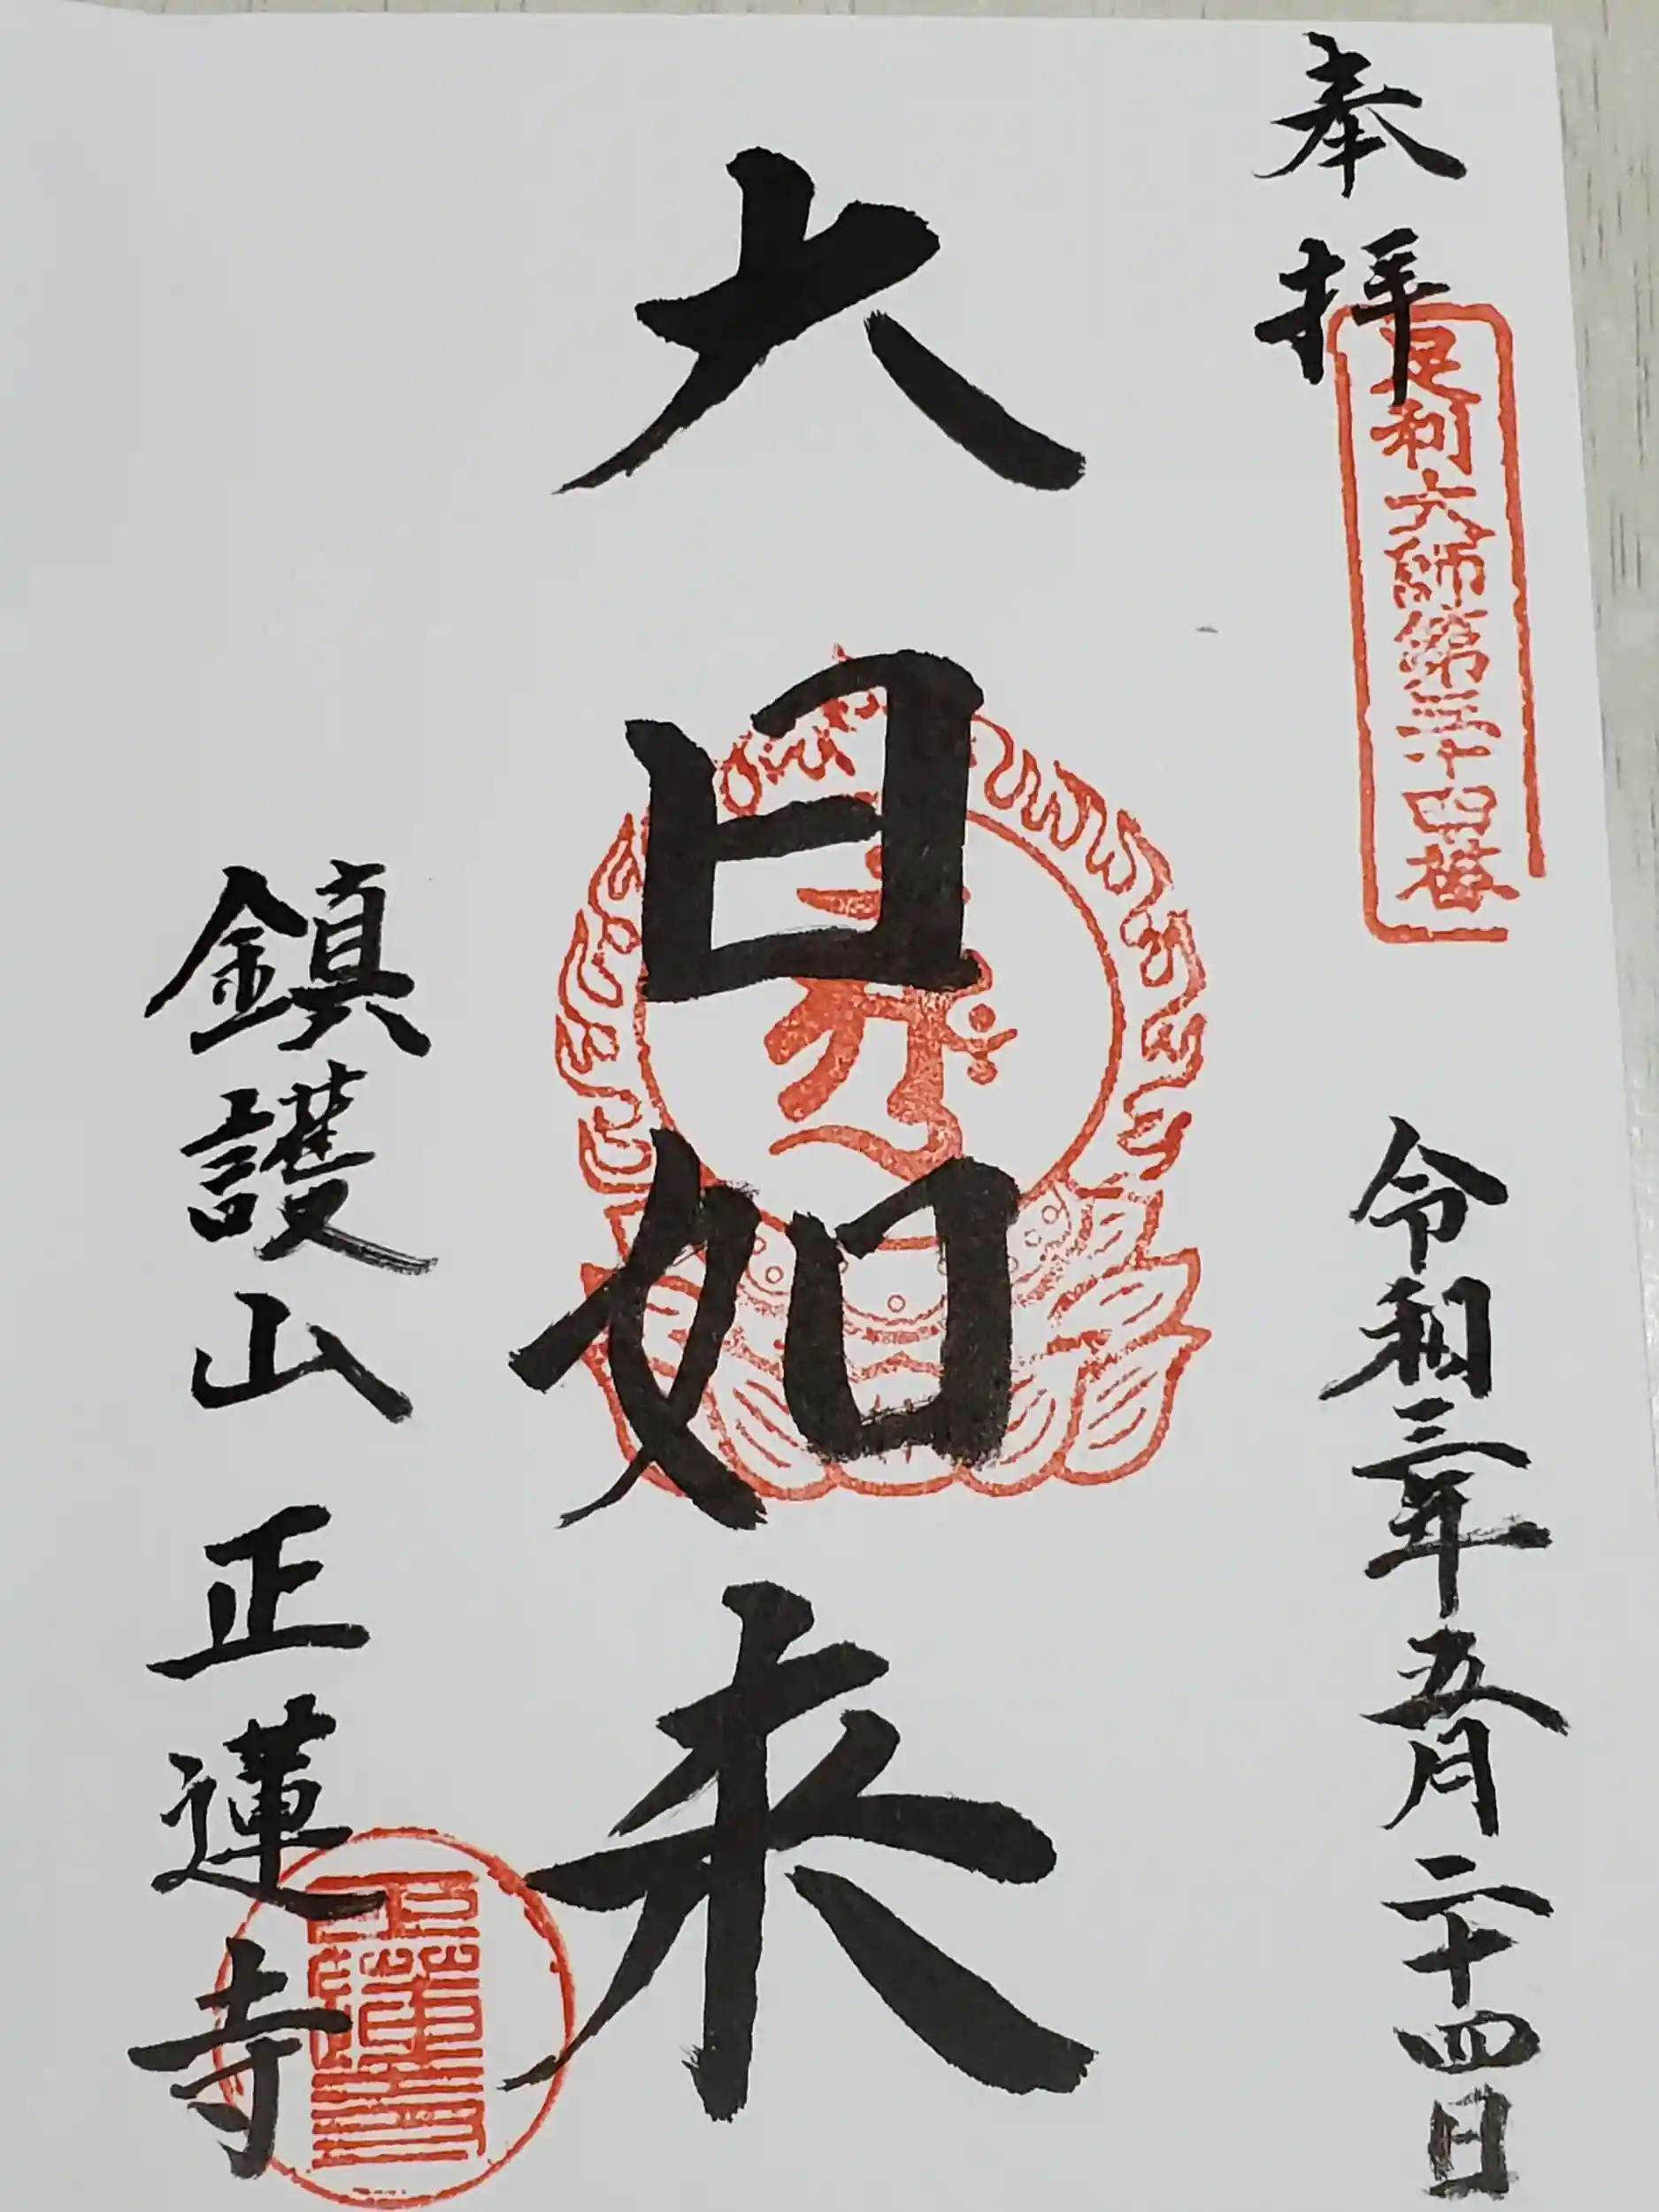 奉拝
足利大師第三十四番
令和三年五月二十四日
大日如来
鎮護山 正蓮寺
正蓮寺